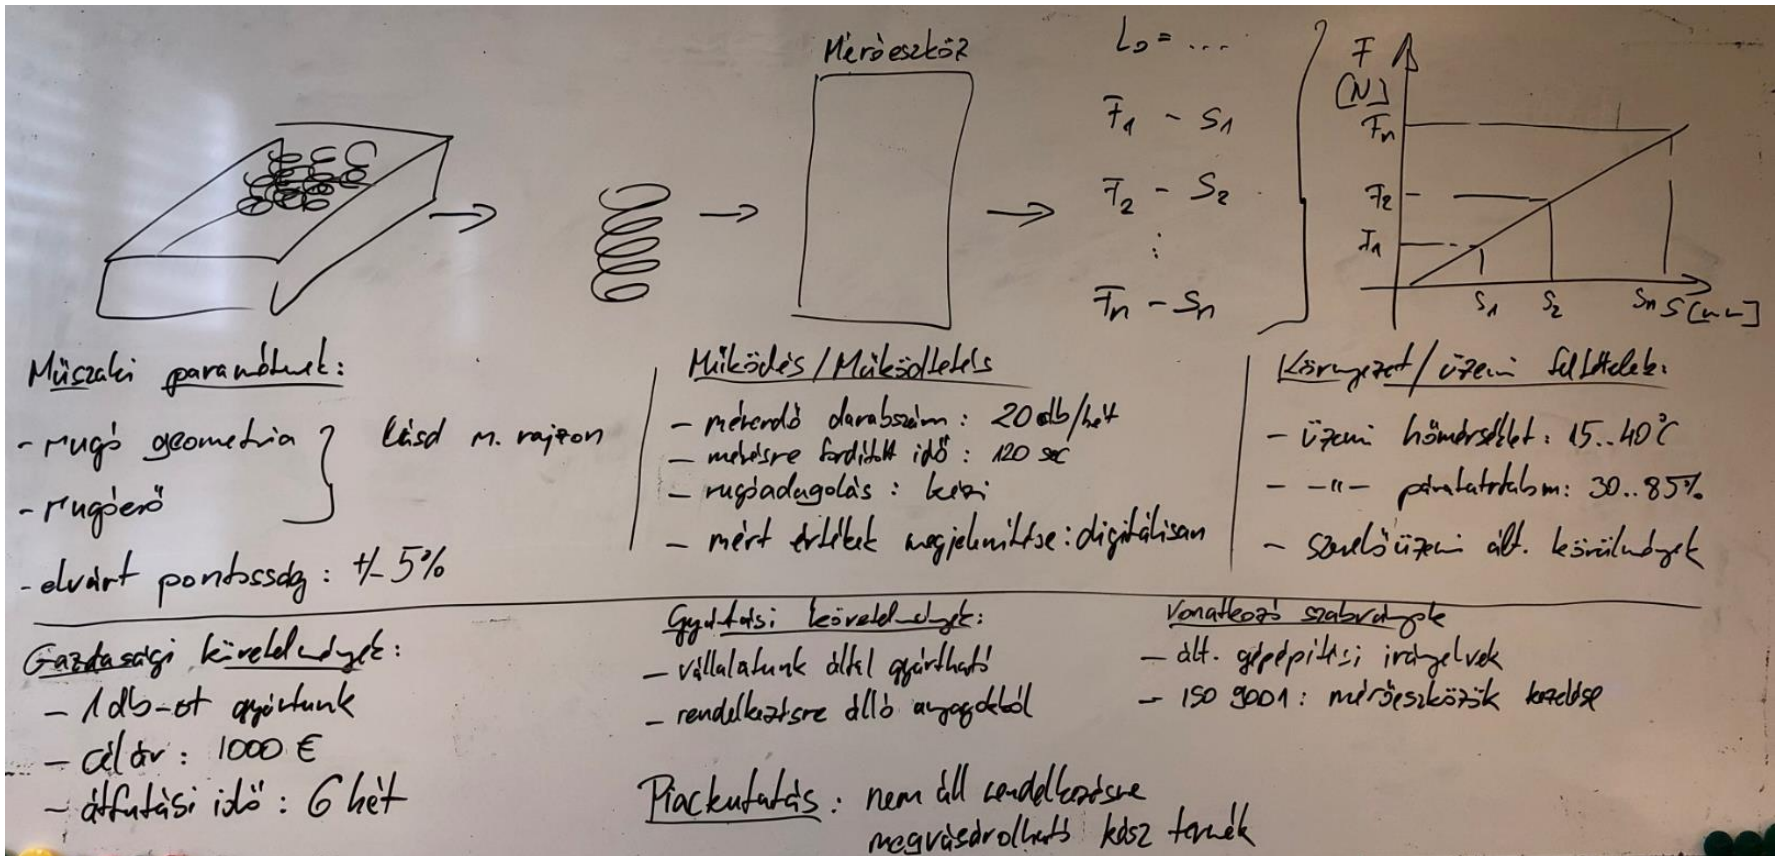 Mérőeszköz
L₀ = ...
F₁ - S₁
F₂ - S₂
⋮
Fn - Sn
F
[N]
Fn
F₂
F₁
S₁ S₂ Sn S [mm]
Műszaki paraméterek:
- rugó geometria } lásd m. rajzon
- rugóerő
- elvárt pontosság: +/- 5%
Működés/Működtetés
- mérendő darabszám: 20 db/hét
- mérésre fordított idő: 120 sec
- rugóadagolás: kézi
- mért értékek megjelenítése: digitálisan
Környezet/üzemi feltételek:
- üzemi hőmérséklet: 15..40°C
- -"- páratartalom: 30..85%
- szerelőüzemi ált. körülmények
Gazdasági követelmények:
- 1 db-ot gyártunk
- célár: 1000 €
- átfutási idő: 6 hét
Gyártási követelmények:
- vállalatunk által gyártható
- rendelkezésre álló anyagokból
Vonatkozó szabványok
- ált. gépépítési irányelvek
- ISO 9001: mérőeszközök kezelése
Piackutatás: nem áll rendelkezésre
megvásárolható kész termék